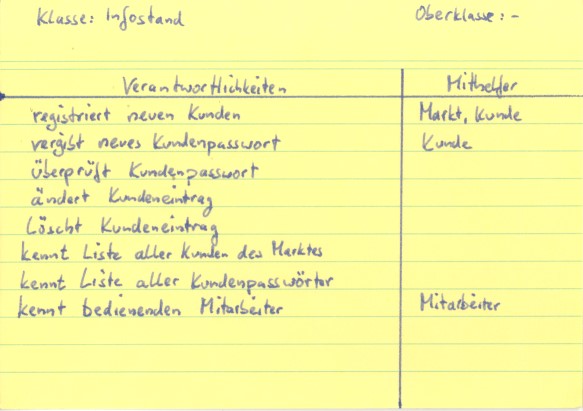 Klasse: Infostand Oberklasse: -
Verantwortlichkeiten Mithelfer
registriert neuen Kunden Markt, Kunde
vergibt neues Kundenpasswort Kunde
überprüft Kundenpasswort
ändert Kundeneintrag
Löscht Kundeneintrag
kennt Liste aller Kunden des Marktes
kennt Liste aller Kundenpasswörter
kennt bedienenden Mitarbeiter Mitarbeiter